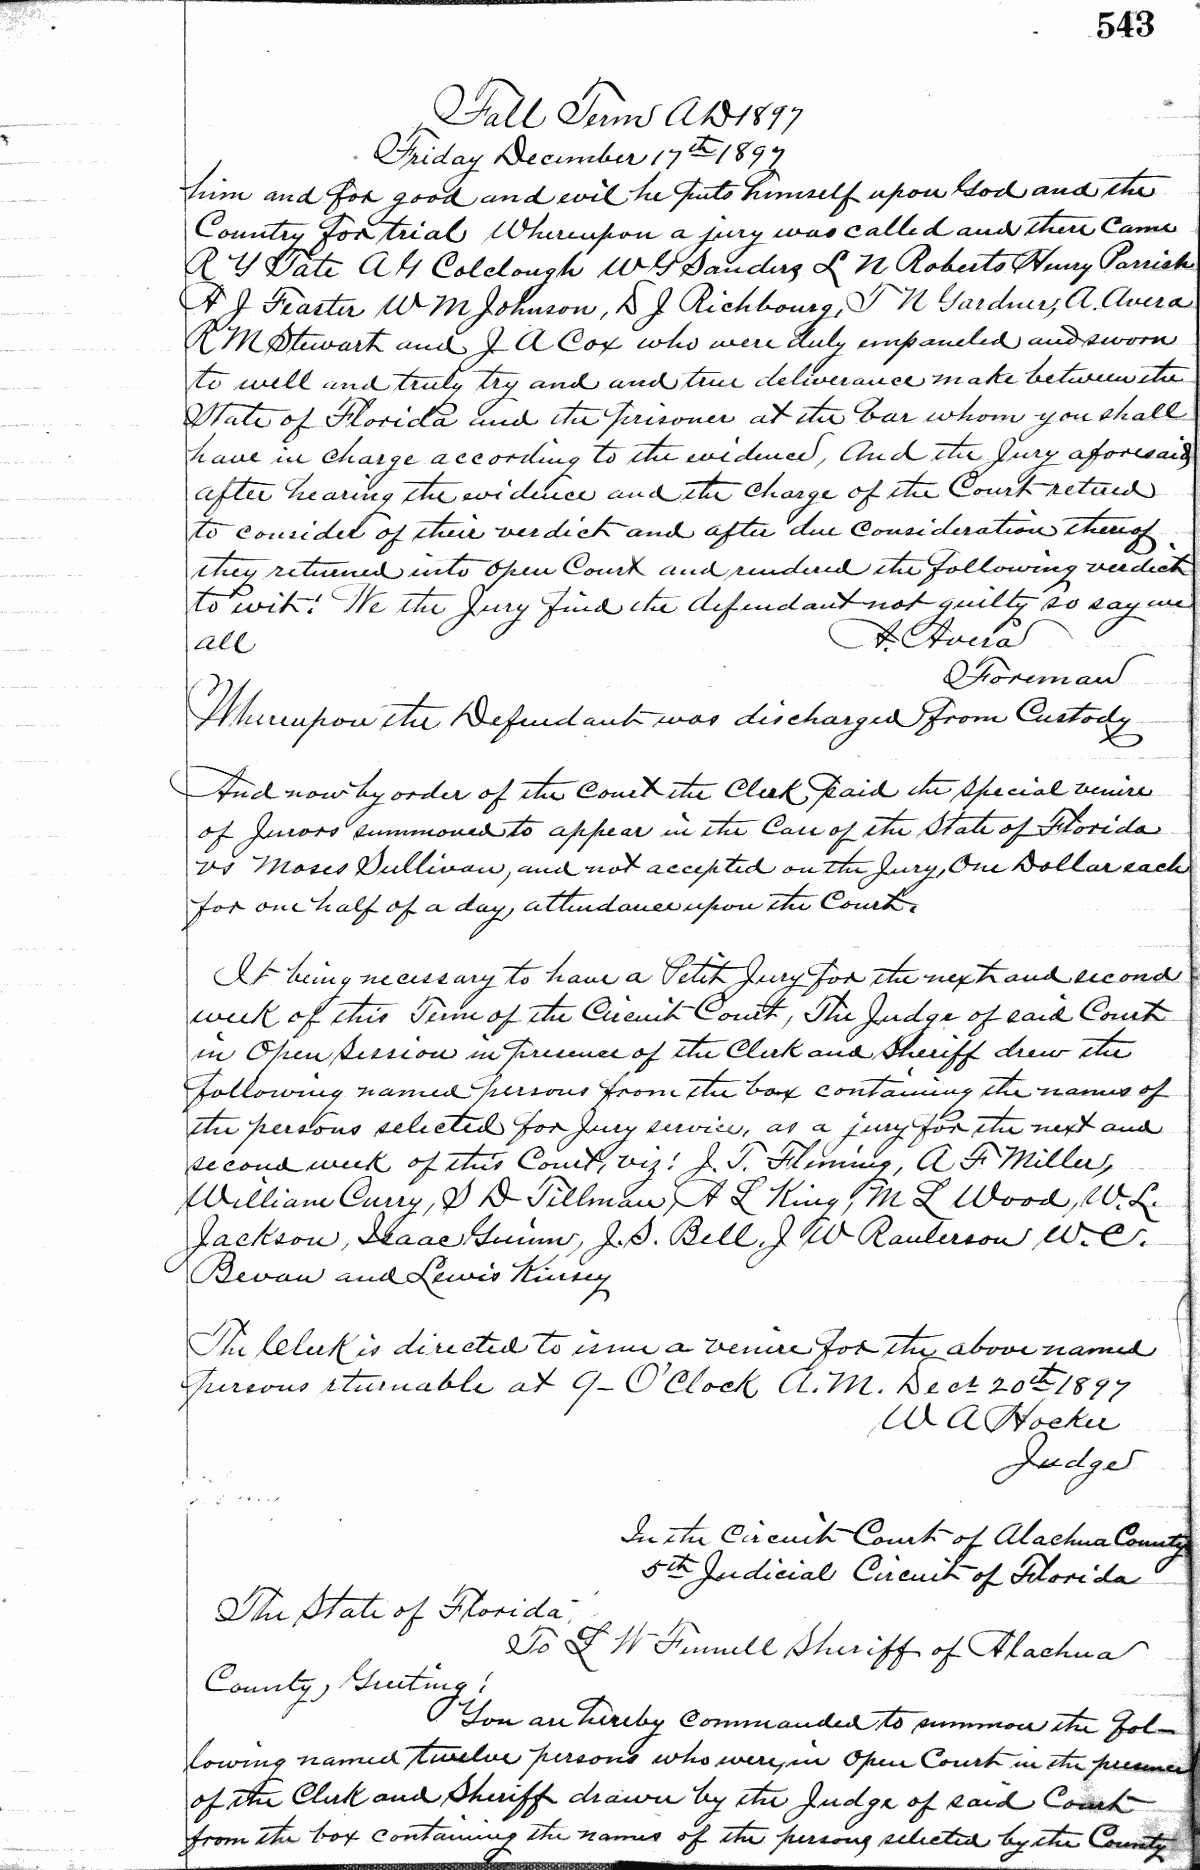 543
Fall Term A D 1897
Friday December 17th 1897
him and for good and evil he puts himself upon God and the
Country for trial Whereupon a jury was called and there Came
R Y Tate A G Colclough W G Sanders L N Roberts Henry Parrish
A J Feaster W M Johnson, D J Richbourg, T N Gardner, A. Avera
R M Stewart and J A Cox who were duly empaneled and sworn
to well and truly try and and true deliverance make between the
State of Florida and the prisoner at the bar whom you shall
have in charge according to the evidence, And the Jury aforesaid
after hearing the evidence and the charge of the Court retired
to consider of their verdict and after due consideration thereof
they returned into open Court and rendered the following verdict
to wit: We the Jury find the defendant not guilty so say we
all A. Avera
Foreman
Whereupon the Defendant was discharged from Custody
And now by order of the Court the Clerk paid the special venire
of Jurors summoned to appear in the Case of the State of Florida
vs Moses Sullivan, and not accepted on the Jury, One Dollar each
for one half of a day, attendance upon the Court.
It being necessary to have a Petit Jury for the next and second
week of this Term of the Circuit Court, The Judge of said Court
in Open Session in presence of the Clerk and Sheriff drew the
following named persons from the box containing the names of
the persons selected for Jury service, as a jury for the next and
second week of this Court, viz: J. T. Fleming, A F Miller,
William Curry, S D Tillman, A L King, M L Wood, W. L.
Jackson, Isaac Guinn, J. S. Bell, J W Raulerson W. C.
Bevan and Lewis Kinsey
The Clerk is directed to issue a venire for the above named
persons rturnable at 9 - O'Clock A. M. Decr 20th 1897
W A Hocker
Judge
In the Circuit Court of Alachua County
5th Judicial Circuit of Florida
The State of Florida
To L W Fennell Sheriff of Alachua
County, Greeting:
You are hereby commanded to summon the fol-
lowing named twelve persons who were, in Open Court in the presence
of the Clerk and Sheriff drawn by the Judge of said Court
from the box containing the names of the persons selected by the County